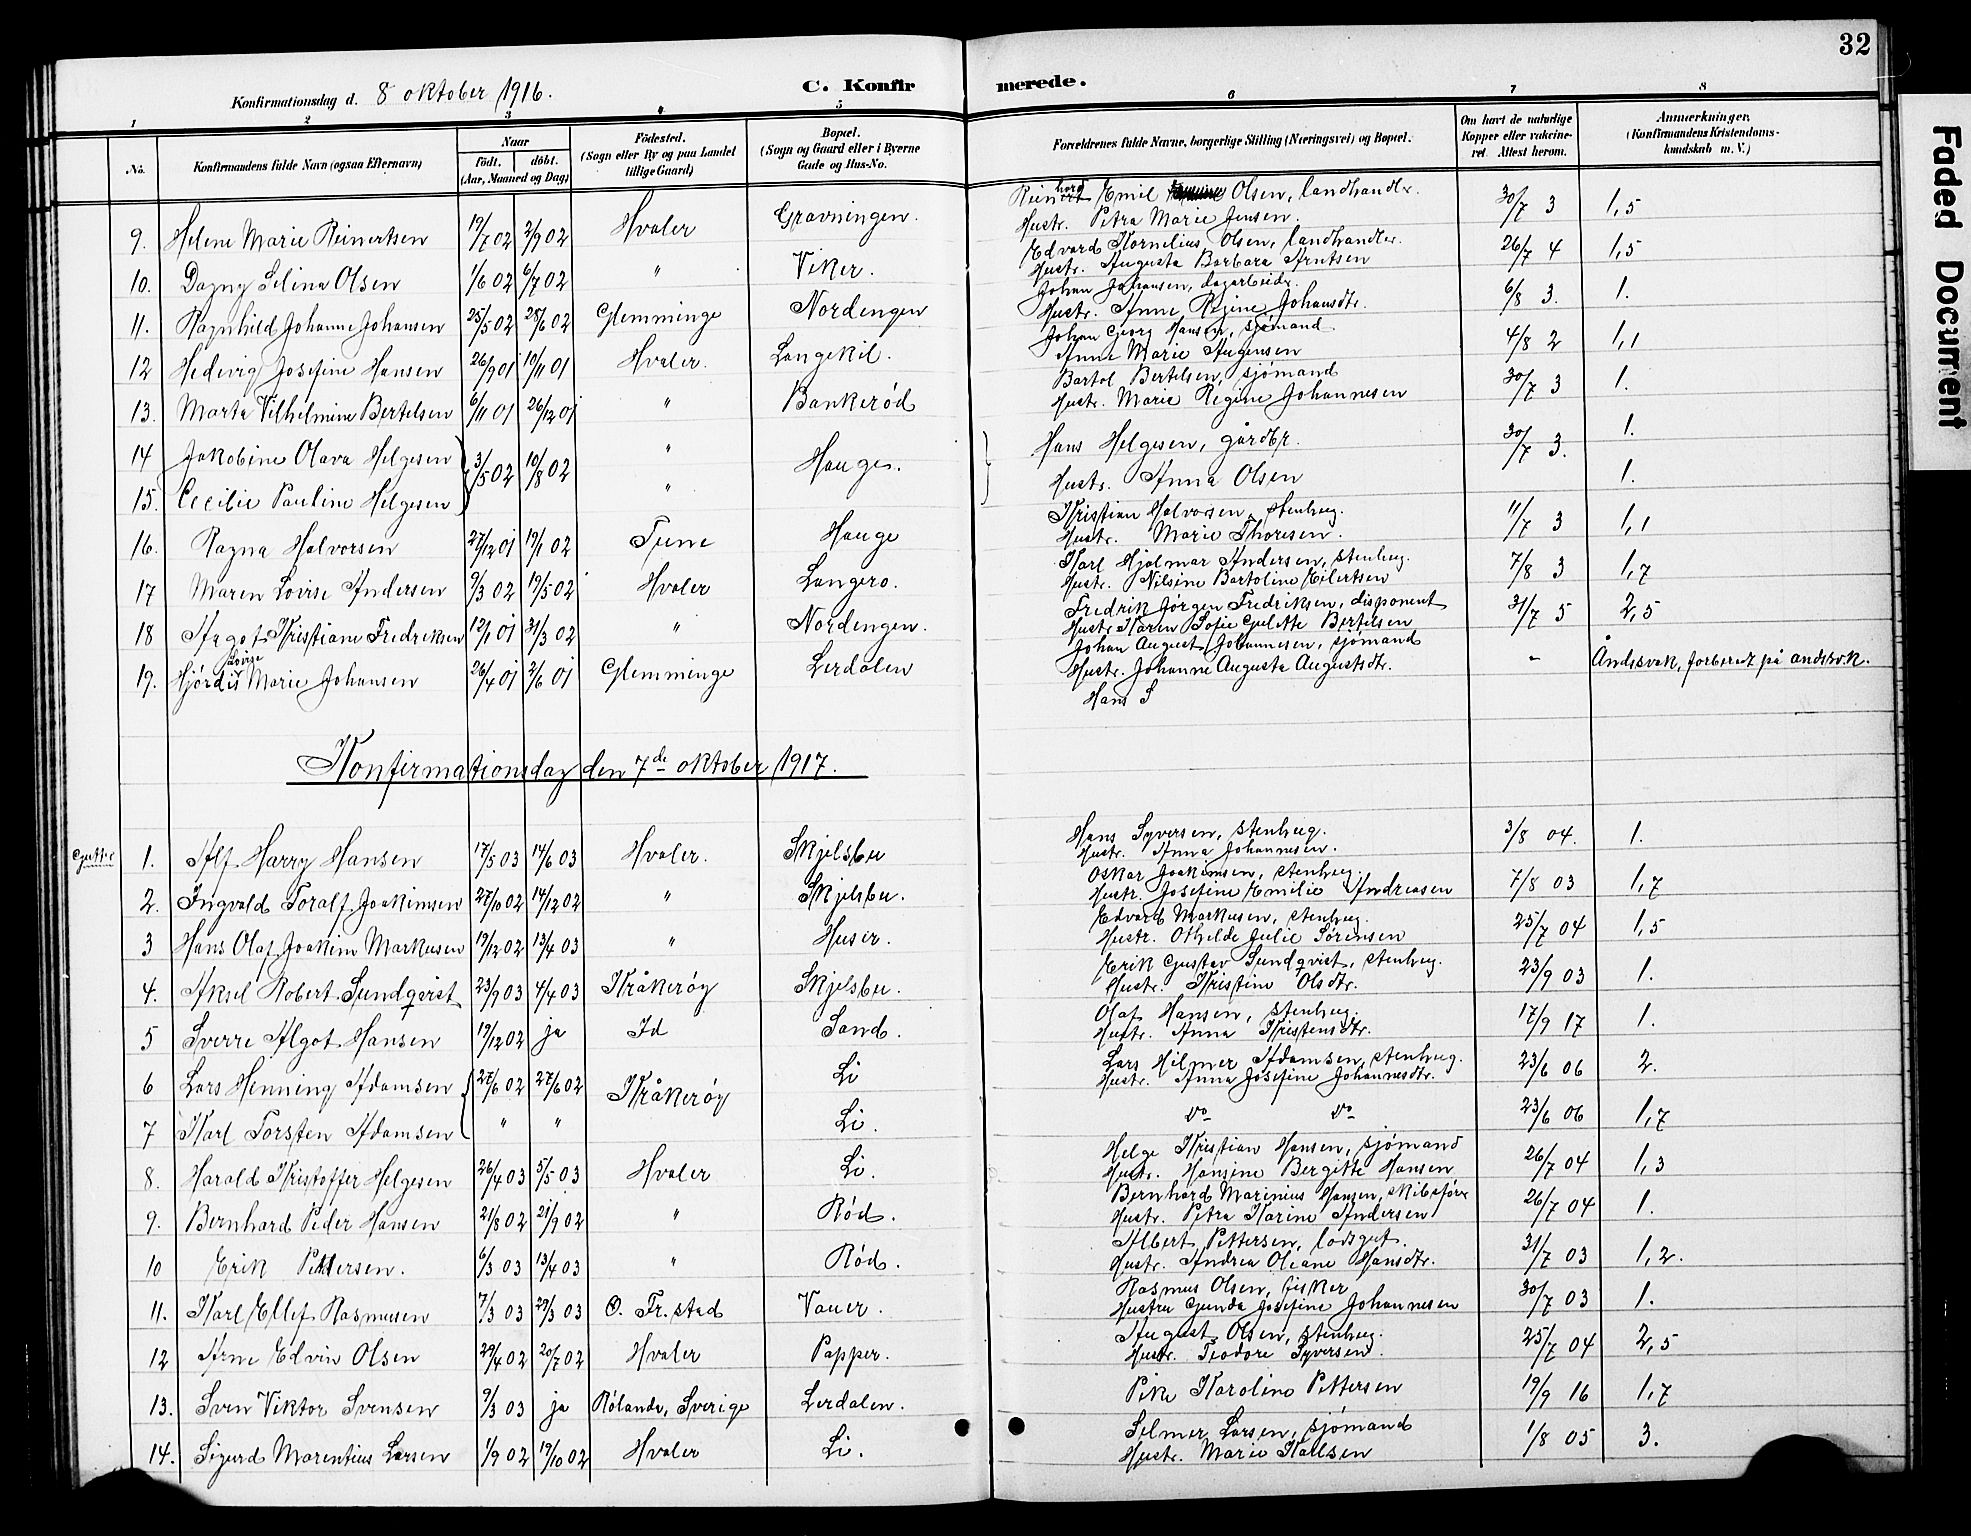 32
Faded Document
Konfirmationsdag d. 8 oktober 1916.
C. Konfirmerede.
1 2 3 4 5 6 7 8
No.
Konfirmandens fulde Navn (ogsaa Efternavn)
Naar
født. døbt.
(Aar, Maaned og Dag)
Fødested.
(Sogn eller By og paa Landet
tillige Gaard)
Bopæl.
(Sogn og Gaard eller i Byerne
Gade og Hus-No.
Forældrenes fulde Navne, borgerlige Stilling (Næringsvei) og Bopæl.
Om havt de naturlige
Kopper eller vakcine-
ret. Attest herom.
Anmærkninger.
(Konfirmandens Kristendoms-
kundskab m. V.)
9. Helene Marie Reinertsen 19/7 02 2/9 02 Hvaler Gravningen. Reinhard Emil Olsen, landhandlr. Hustr. Petra Marie Jensen. 30/7 3 1,5
10. Dagny Selina Olsen 1/6 02 6/7 02 " Viker. Edvard Kornelius Olsen, landhandler. Hustr. Augusta Barbara Arntsen 26/7 4 1,5
11. Ragnhild Johanne Johansen 25/5 02 28/6 02 Glemminge Nordengen Johan Johansen, dagarbeidr. Hustr. Anne Regine Johansdtr. 6/8 3. 1.
12 Hedevig Josefine Hansen 26/9 01 10/11 01 Hvaler. Langekil. Johan Georg Hansen, sjømand Anne Marie Jugensen 4/8 2 1,1
13. Marta Vilhelmine Bertelsen 6/11 01 26/12 01 " Bankerød Bartol Bertelsen, sjømand Hustr. Marie Regine Johannesen 30/7 3 1.
14 Jakobine Olava Helgesen } 3/5 02 10/8 02 " Hauge. Hans Helgesen, gårdbr. 30/7 3. 1.
15. Cecilie Pauline Helgesen " Hustr. Anna Olsen 1.
16. Ragna Halvorsen 27/12 01 19/1 02 Tune Hauge Kristian Halvorsen, stenhug. Hustr. Marie Thoresen. 11/7 3 1,1
17 Maren Lovise Andersen 9/3 02 19/5 02 Hvaler Langero. Karl Hjalmar Andersen, stenhug. Hustr. Nilsine Bartoline Eilertsen 7/8 3 1,7
18 Aagot Kristiane Fredriksen 12/1 01 31/3 02 " Nordengen. Fredrik Jørgen Fredriksen, disponent Hustr. Karen Sofie Gulette Bertelsen 31/7 5 2,5
19. Hjørdis Lovise Marie Johansen 26/4 01 2/6 01 Glemminge Lerdalen Johan August Johannesen, sjømand Hustr. Johanne Augusta Augustsdtr. - Åndssvak, forberedt på andsv.k.
Hans S
Konfirmationsdag den 7de oktober 1917.
Gutter 1. Alf Harry Hansen 17/5 03 14/6 03 Hvaler. Skjelsbu Hans Syversen, stenhug. Hustr. Anna Johannesen. 3/8 04. 1.
2. Ingvald Toralf Joakimsen 27/10 02 14/12 02 " Skjelsbu. Oskar Joakimsen, stenhug. Hustr. Josefine Emilie Andreasen 7/8 03 1,7
3 Hans Olaf Joakim Markusen 19/12 02 13/4 03 " Huser. Edvard Markusen, stenhug. Hustr. Othilde Julie Sørensen 25/7 04 1,5
4. Aksel Robert Sundqvist 23/9 03 4/4 03 Kråkerøy Skjelsbu. Erik Gustav Sundqvist, stenhug. Hustr. Kristine Olsdtr. 23/9 03 1.
5 Sverre Algot Hansen 19/12 02 ja Id Sand. Olaf Hansen, stenhug. Hustr. Anna Kristensdtr. 17/9 17 1.
6 Lars Henning Adamsen { 27/6 02 27/6 02 Kråkerøy Li Lars Hilmer Adamsen, stenhug. Hustr. Anna Josefine Johannesdtr. 23/6 06 2.
7 Karl Torsten Adamsen " " Li. Do Do 23/6 06 1,7
8. Harald Kristoffer Helgesen 26/4 03 5/5 03 Hvaler Li. Helge Kristian Hansen, sjømand Hustr. Hansine Bergitte Hansen 26/7 04 1,3
9. Bernhard Peder Hansen 21/8 02 21/9 02 " Rød. Bernhard Marinius Hansen, skibsfører Hustr. Petra Karine Andersen 26/7 04 1.
10 Erik Pettersen. 6/3 03 13/4 03 " Rød. Albert Pettersen, lodsgut. Hustr. Andrea Oleane Hansdtr. 31/7 03 1,2.
11. Karl Ellef Rasmusen 7/3 03 29/3 03 O. Fr.stad Vauer. Rasmus Olsen, fisker Hustru Gunda Josefine Johannesen 30/7 03 1.
12 Arne Edvin Olsen 29/4 02 20/7 02 Hvaler Papper. August Olsen, stenhug. Hustr. Teodore Syversen. 25/7 04 2,5
13. Sven Viktor Svensen 9/3 03 ja Rølanda, Sverige Lerdalen. Pike Karoline Pettersen 19/9 16 1,7
14. Sigurd Marentius Larsen 1/9 02 19/10 02 Hvaler Li. Selmer Larsen, sjømand Hustr. Marie Kallsen 1/8 05 3.